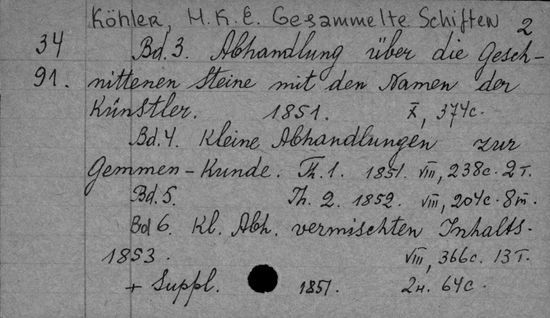 Köhler, H.K.E. Gesammelte Schiften 2
34 Bd. 3. Abhandlung über die Gesch-
91. nittenen Steine mit den Namen der
Künstler. 1851. X, 374c.
Bd. 4. Kleine Abhandlungen zur
Gemmen-Kunde. Th. 1. 1851. VIII, 238c. 2 T.
Bd. 5. Th. 2. 1852. VIII, 204c. 8 m.
Bd 6. Kl. Abh. vermischten Inhalts.
1853. VIII, 366c. 13 T.
+ Suppl. 1851. 2н. 64c.